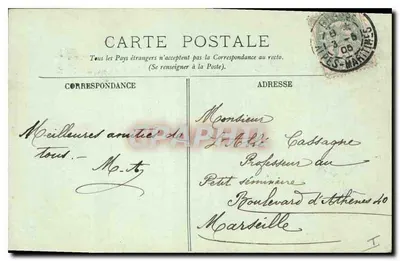 CARTE POSTALE
Tous les Pays étrangers n'acceptent pas la Correspondance au recto.
(Se renseigner à la Poste).
CORRESPONDANCE
ADRESSE
ALPES-MARITMES
Meilleures amitiés de
tous. —
M. A
Monsieur
Cassagne
Professeur au
Petit séminaire
Boulevard d'Athènes 40
Marseille
I